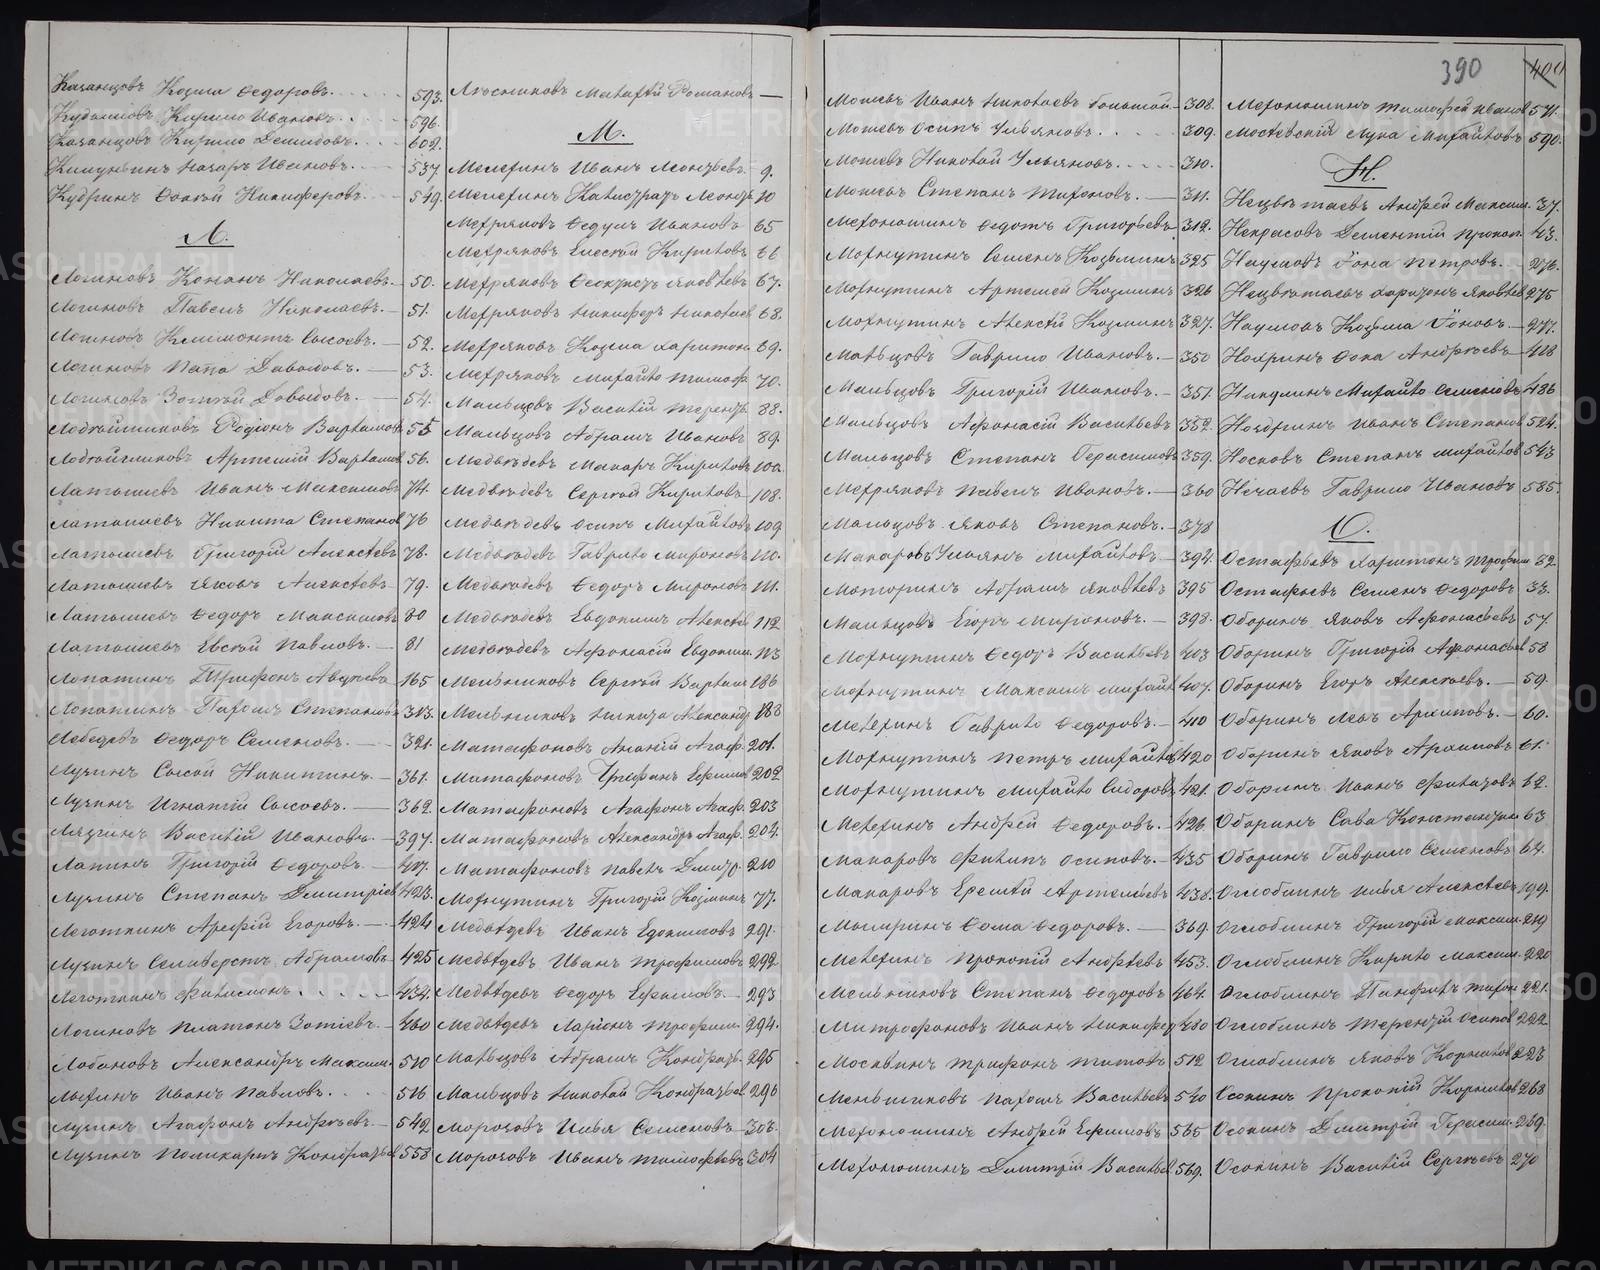 Казанцовъ Козма Ѳедоровъ. 593.
Кирило Ивановъ. 596.
Казанцовъ Кирило Демидовъ. 602.
Назаръ Ивановъ. 537
Кудринъ Никифоровъ. 549.
Л.
Логиновъ Кононъ Николаевъ. 50.
Логиновъ Павелъ Николаевъ. 51.
Логиновъ Климонтъ Сысоевъ. 52.
Логиновъ Давыдовъ. 53.
Логиновъ Зотѣй Давыдовъ. 54.
Родіонъ 55
Артемій 56.
Латышевъ Иванъ Максимовъ 74.
Латышевъ Никита Степановъ 76
Латышевъ Григорій Алексѣевъ 78.
Латышевъ Яковъ Алексѣевъ 79.
Латышевъ Ѳедоръ Максимовъ 80
Латышевъ Евсѣй Павловъ. 81
Лопатинъ Трифонъ 165
Лопатинъ Степановъ 313.
Лебедевъ Ѳедоръ Семеновъ. 321.
Лузинъ Сысой Никитинъ. 361.
Лузинъ Игнатій Сысоевъ. 362.
Василій Ивановъ. 397.
Лапинъ Григорій Ѳедоровъ. 407.
Лузинъ Степанъ Дмитріев 423.
Леготкинъ Арефій Егоровъ. 424
Лузинъ Селиверстъ Абрамовъ 425
Леготкинъ 434.
Логиновъ Платонъ Зотіевъ. 460
Лобановъ Александръ Максим. 510
Иванъ Павловъ. 516
Лузинъ Агафонъ Андреевъ 542
Лузинъ Поликарпъ Кондратьев 558
Романовъ
М.
Мелехинъ Иванъ Леонтьевъ. 9.
Мелехинъ Калистратъ Леонтьев 10
Мехряковъ Ѳедулъ Ивановъ 65
Мехряковъ Елесѣй Кириловъ 66
Мехряковъ Ѳеоктистъ Яковлевъ 67.
Мехряковъ Никифоръ Николаев 68.
Мехряковъ Козма Харитон. 69.
Мехряковъ Михайло Тимоф. 70.
Мальцовъ Василій Терентьев. 88.
Мальцовъ Абрамъ Ивановъ 89.
Медвѣдевъ Макаръ Кириловъ 100
Медвѣдевъ Сергѣй Кириловъ 108.
Медвѣдевъ Осипъ Михайловъ 109
Медвѣдевъ Гаврило Мироновъ 110.
Медвѣдевъ Ѳедоръ Мироновъ 111.
Медвѣдевъ Евдокимъ Алексѣев 112
Медвѣдевъ Афонасій Евдоким. 113
Мельниковъ Сергѣй 186
Мельниковъ Никита Александр 188
Матафоновъ Ананій Агаф. 201.
Матафоновъ Трифонъ Ефимов 202
Матафоновъ Агафонъ Агаф. 203
Матафоновъ Александръ Агаф. 204.
Матафоновъ Павелъ Дмитр. 210
Мохнуткинъ Григорій Козминъ 77.
Медвѣдевъ Иванъ 291.
Медвѣдевъ Иванъ Трофимовъ 292
Медвѣдевъ Ѳедоръ Ефимовъ. 293
Медвѣдевъ Ларіонъ Трофим. 294.
Мальцовъ Абрамъ Кондрать. 295
Мальцовъ Николай Кондратьев 296
Морозовъ Илья Семеновъ 303.
Морозовъ Иванъ Тимофѣевъ 304
390
400
Мотевъ Иванъ Николаевъ большой 308.
Мотевъ Осипъ Ульяновъ. 309.
Мотевъ Николай Ульяновъ. 310.
Мотевъ Степанъ Тихоновъ. 311.
Мехоношинъ Ѳедотъ Григорьевъ 312.
Мохнуткинъ Семенъ Козьминъ 325
Мохнуткинъ Артемей Козминъ 326
Мохнуткинъ Алексѣй Козминъ 327.
Мальцовъ Гаврило Ивановъ. 350
Мальцовъ Григорій Ивановъ. 351.
Мальцовъ Афонасій Васильевъ 352.
Мальцовъ Степанъ Герасимовъ 359.
Мехряковъ Павелъ Ивановъ. 360
Мальцовъ Яковъ Степановъ. 378
Макаровъ Ульянъ Михайловъ 394.
Маторинъ Абрамъ Яковлевъ 395
Мальцовъ Егоръ Мироновъ. 398.
Мохнуткинъ Ѳедоръ Васильевъ 403
Мохнуткинъ Максимъ Михайл 407.
Мелехинъ Гаврило Ѳедоровъ. 410
Мохнуткинъ Петръ Михайлов 420
Мохнуткинъ Михайло Сидоровъ 421.
Мелехинъ Андрей Ѳедоровъ. 426.
Макаровъ Филипъ Осиповъ. 435
Макаровъ Еремѣй Артемьевъ 438.
Ѳома Ѳедоровъ. 369.
Мелехинъ Прокопій Андрѣевъ 453.
Мельниковъ Степанъ Ѳедоровъ 464.
Митрофановъ Иванъ Никифор 480
Москвинъ Трифонъ Титовъ 512
Меньшиковъ Пахомъ Васильевъ 540
Мехоношинъ Андрей Ефимовъ 565
Мехоношинъ Дмитрій Васильев 569.
Мехоношинъ Тимофей Иванов 571.
Мостовскій Лука Михайловъ 590.
Н.
Нецвѣтаевъ Андрей Максим. 37.
Некрасовъ Дементій Прокоп. 43.
Наумовъ Іона Петровъ. 276.
Нецвѣтаевъ Харитонъ Яковлев 275
Наумовъ Козьма Іоновъ. 277.
Ноздринъ Фока Андрѣевъ 418
Михайло Семеновъ 486
Ноздринъ Иванъ Степанов 524.
Носковъ Степанъ Михайлов 543
Нечаевъ Гаврило Ивановъ 585.
О.
Остафьевъ Харитонъ Трофим 32.
Остафьевъ Семенъ Ѳедоровъ 33.
Оборинъ Яковъ Афонасьевъ 57.
Оборинъ Григорій Афонасьев 58
Оборинъ Егоръ Алексѣевъ. 59.
Оборинъ Левъ Архиповъ. 60.
Оборинъ Яковъ Архиповъ 61.
Оборинъ Иванъ 62.
Оборинъ Сава Константин 63
Оборинъ Гаврило Семеновъ 64.
Оглоблинъ Илья Алексѣевъ 199.
Оглоблинъ Григорій Максим. 219
Оглоблинъ Кирило Максим. 220
Оглоблинъ Панфилъ Тихон 221.
Оглоблинъ Терентій Осипов 222.
Оглоблинъ Яковъ Корнилов 223
Осокинъ Прокопій Корнилов 268
Осокинъ Дмитрій Герасим. 269.
Осокинъ Василій Сергѣевъ 270